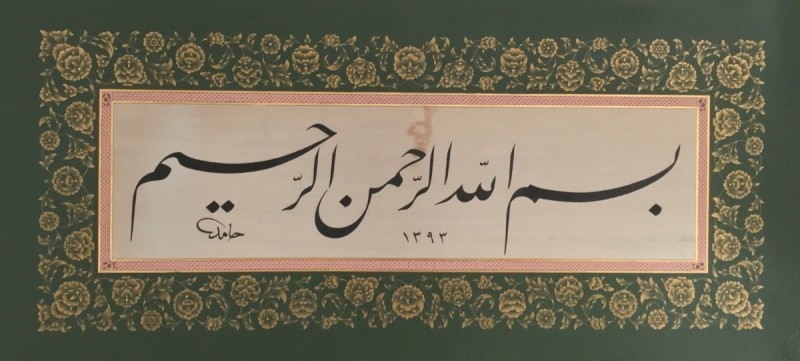 بسم الله الرحمن الرحيم
١٣٩٣
حامد